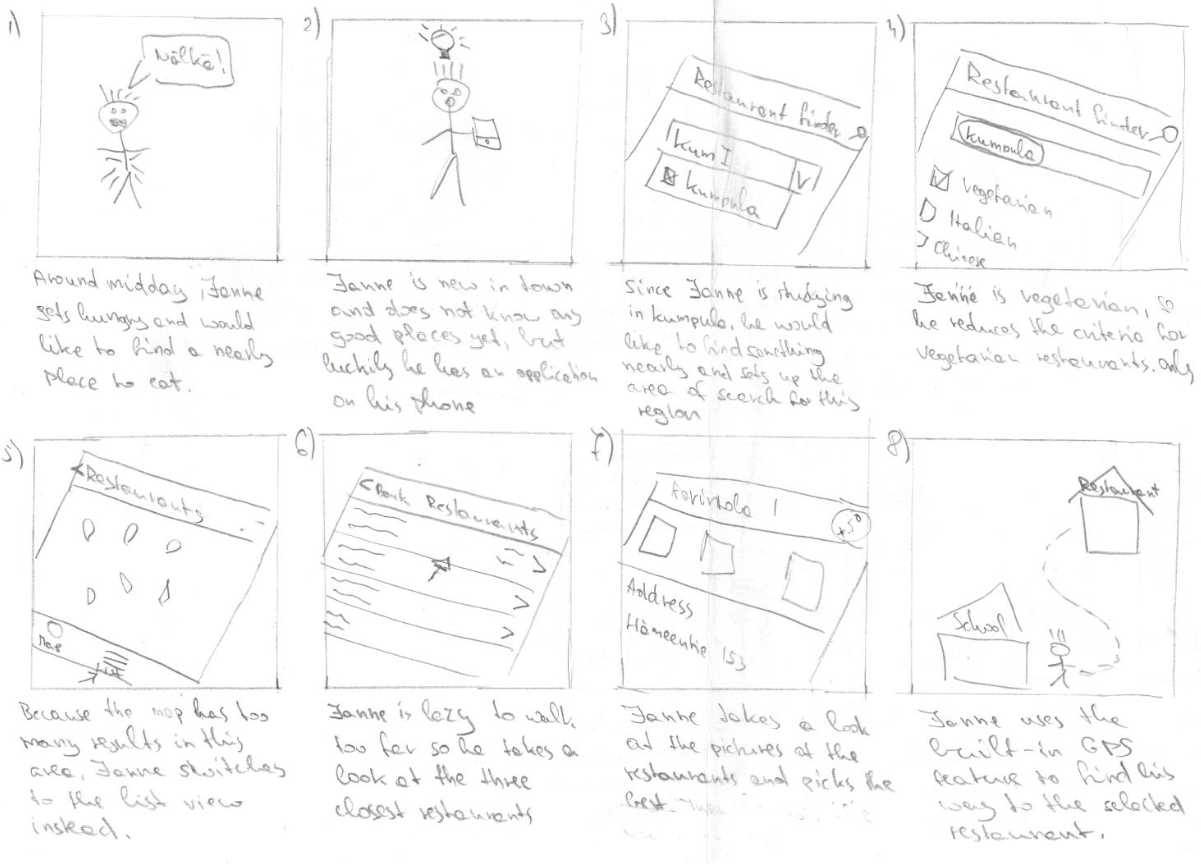 1)
Nälkä!
Around midday, Janne
gets hungry and would
like to find a nearby
place to eat.
2)
Janne is new in town
and does not know any
good places yet, but
luckily he has an application
on his phone
3)
Restaurant finder
kum I
V
kumpula
Since Janne is studying
in kumpula, he would
like to find something
nearby and sets up the
area of search for this
region
4)
Restaurant finder
kumpula
Vegetarian
Italian
Chinese
Janne is vegetarian, so
he reduces the criteria for
vegetarian restaurants only
5)
< Restaurants
Map
Because the map has too
many results in this
area, Janne switches
to the list view
instead.
6)
< Back Restaurants
Janne is lazy to walk
too far so he takes a
look at the three
closest restaurants
7)
Ravintola 1
Address
Hämeentie 153
Janne takes a look
at the pictures of the
restaurants and picks the
best.
8)
Restaurant
School
Janne uses the
built-in GPS
feature to find his
way to the selected
restaurant.